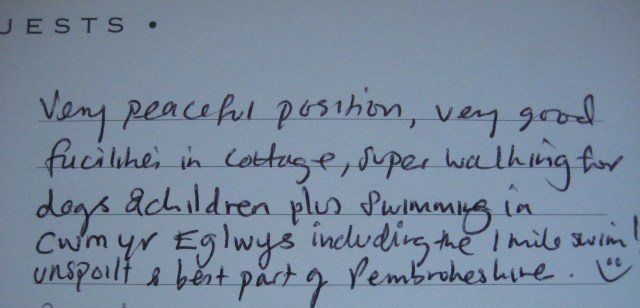 UESTS •
Very peaceful position, very good
facilities in cottage, super walking for
dogs & children plus swimming in
Cwm yr Eglwys including the 1 mile swim!
unspoilt & best part of Pembrokeshire.